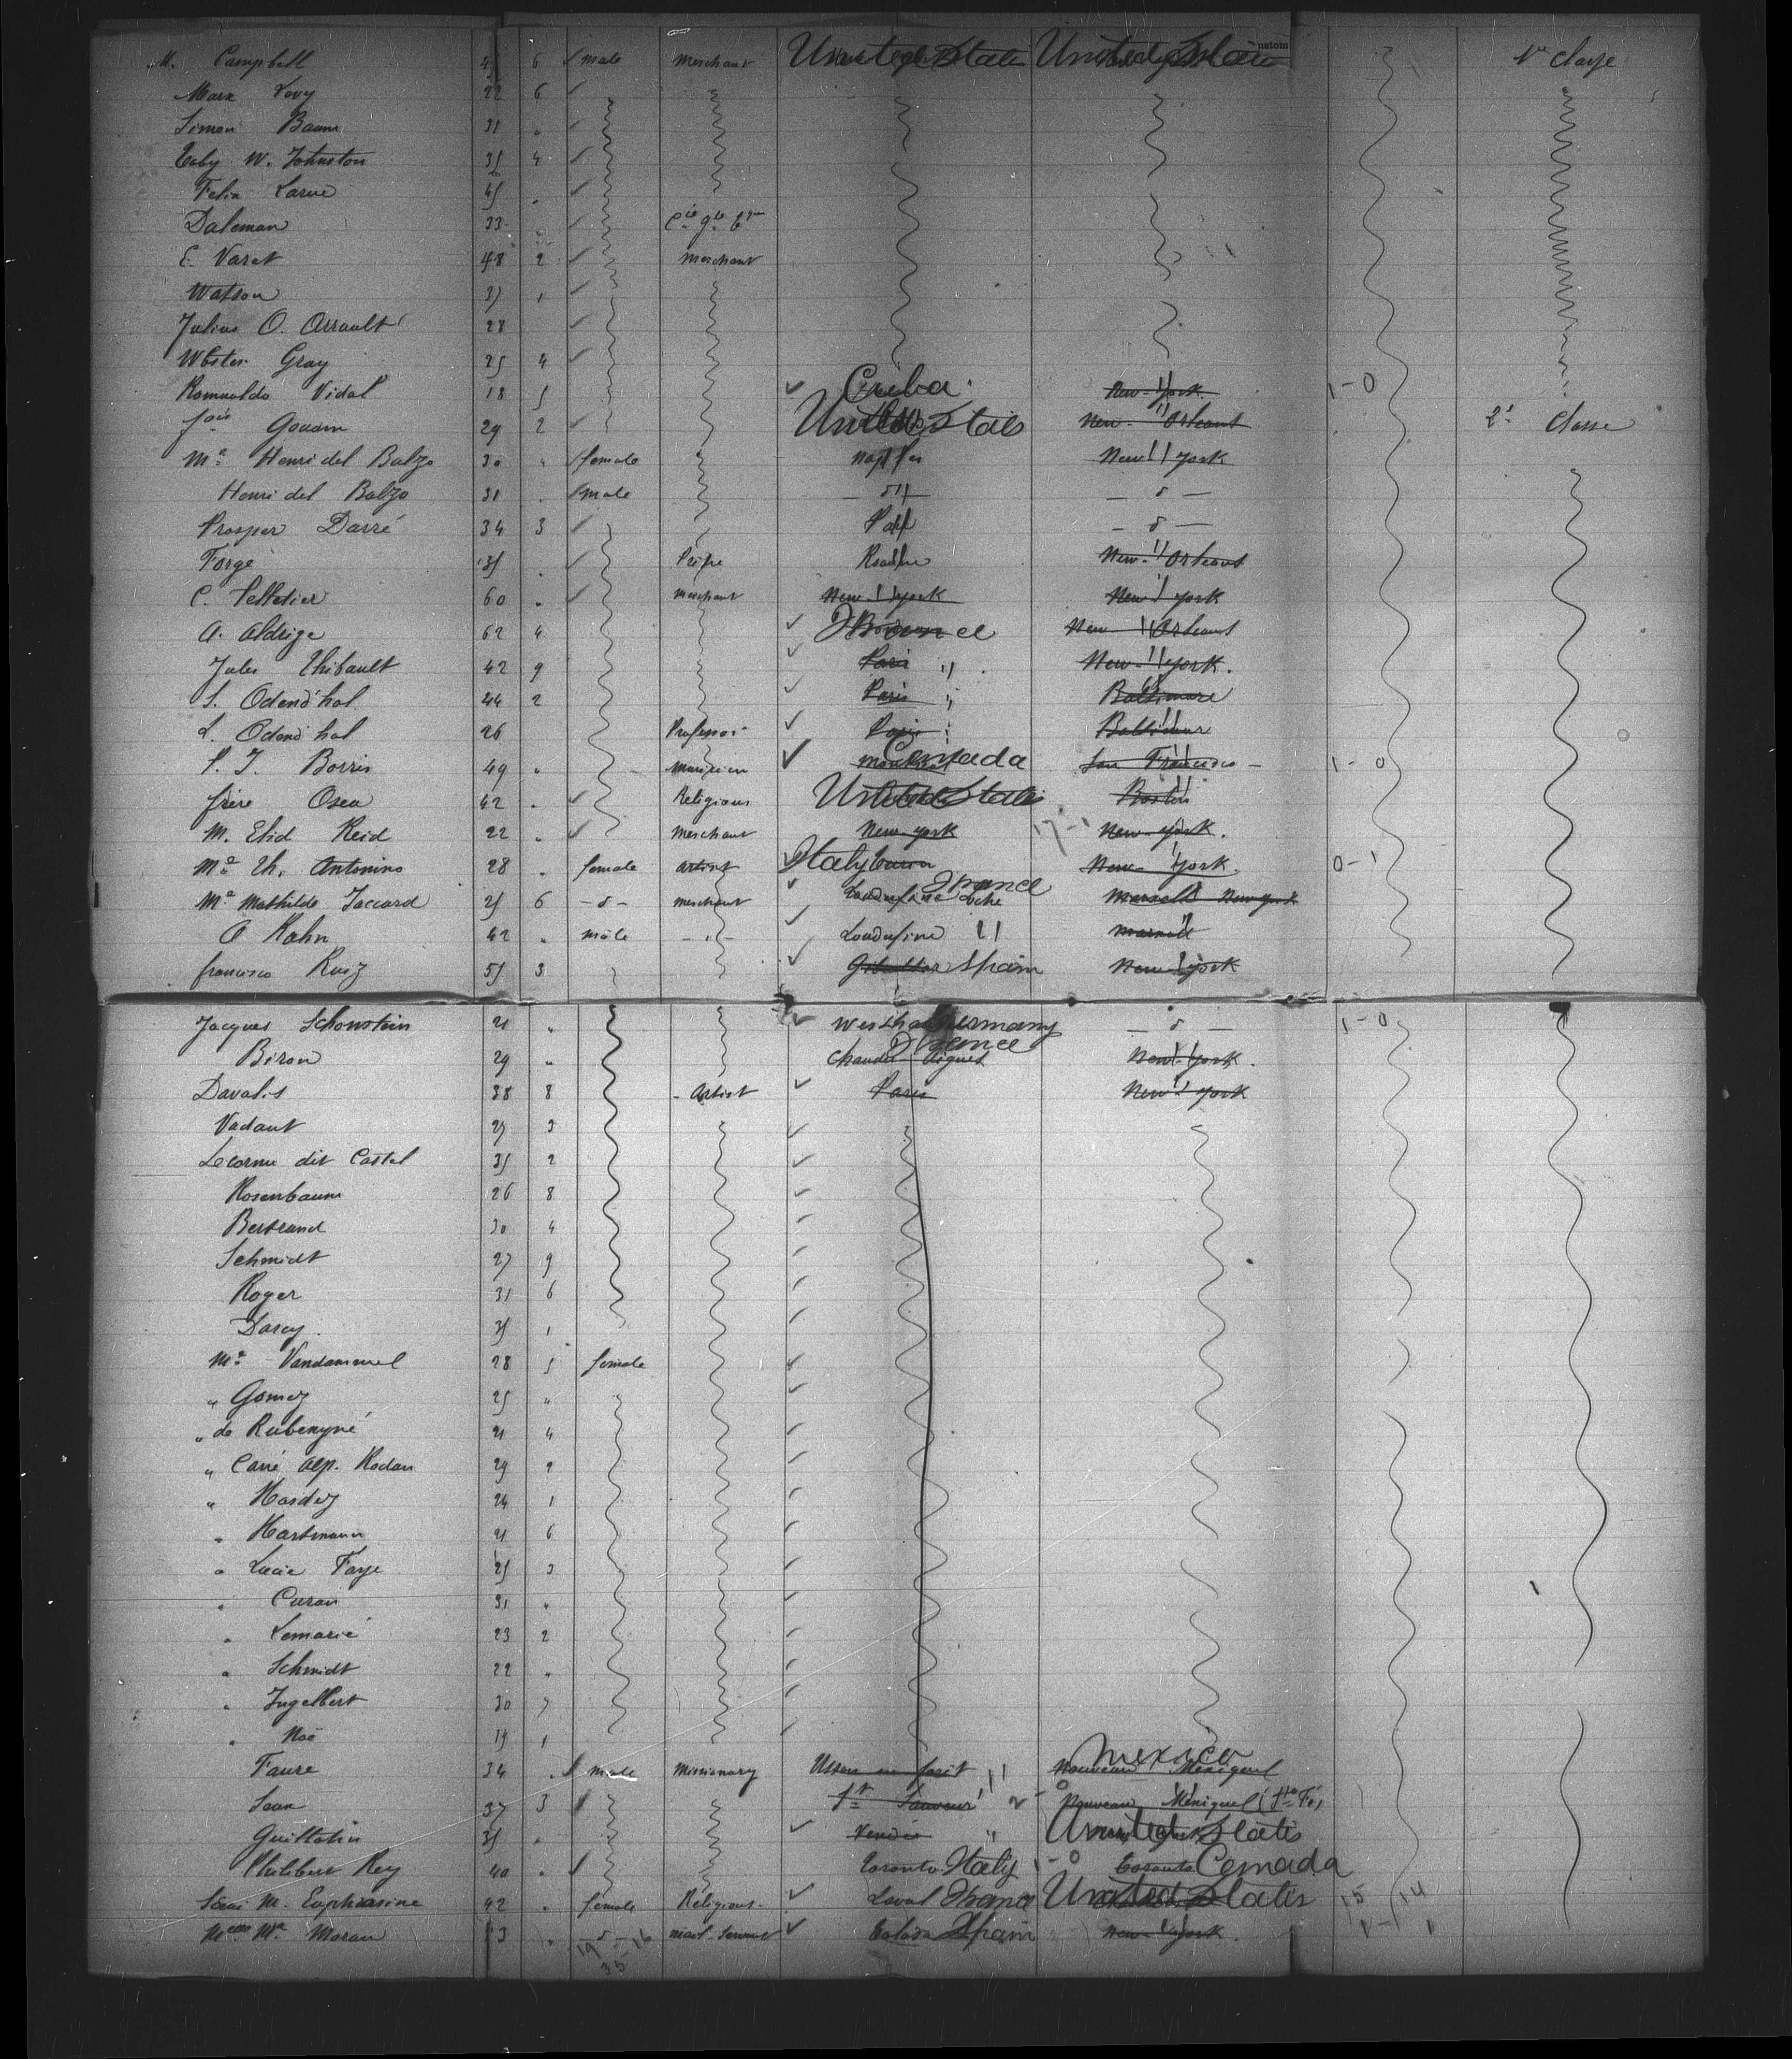 M. Campbell 45 6 male Merchant United States United States 1re classe
Marx Levy 22 6
Simon Baum 31 "
W. Johnston 35 4
Felix Larue 45 "
Daleman 33
E. Varet 48 2 Merchant
Watson 37 1
Julius O. Arrault 28
Wbster Gray 25 4
Romualdo Vidal 18 5 Cuba New-York 1-0
Goudin 29 2 United States New-Orleans 2e Classe
Me Henri del Balzo 30 " female Naples New York
Henri del Balzo 31 " male — d — — d —
Prosper Darré 34 3 — d —
Forgé 35 " New-Orleans
C. Pelletier 60 " merchant New-York New York
A. Aldrige 62 4 France New Orleans
Jules Thibault 42 9 Paris " New-York.
S. Odend'hal 44 2 Paris " Baltimore
L. Odend'hal 26 Professor Paris " Baltimore
P. J. Borris 49 " musician Canada San Francisco 1-0
frère Osea 42 " Religious United States Boston
M. Elid Reid 22 " merchant New-york New-york.
Me Th. Antonino 28 " female artist Italy New-York. 0-1
Me Mathilde Jaccard 25 6 — d — merchant France New york
O Kahn 42 " male — " — "
francisco Ruiz 55 3 Gibraltar Spain New York
Jacques Schonstein 21 " Germany — d — 1-0
Biron 29 " Chaudes Aigues France New York.
Davalis 38 8 Artist Paris New York
Vadant 27 3
Lecornu dit Castel 35 2
Rosenbaum 26 8
Bertrand 30 4
Schmidt 27 9
Roger 31 6
Darcy 35 1
Me Vandammel 28 5 female
" Gomez 25 "
" de Rubenyné 21 4
" Carré Alp. Rodan 29 2
" Hardez 24 1
" Hartmann 21 6
" Lucie Faye 25 3
" Curan 31 "
" Lemarié 23 2
" Schmidt 22 "
" Ingelbert 30 7
" Noé 19 1
Faure 34 " male Missionary " Mexico Nouveau Mexique
Jean 37 3 St Sauveur " Nouveau Mexique (Sta Fé)
Guittotin 35 " Vendée " United States
Philibert Rey 40 " Toronto Italy 1-0 Toronto Canada
M. Euphrasine 42 " female Religious Laval France United States 15 14
Me Moran 33 " — d — Spain New York.
19 16
35